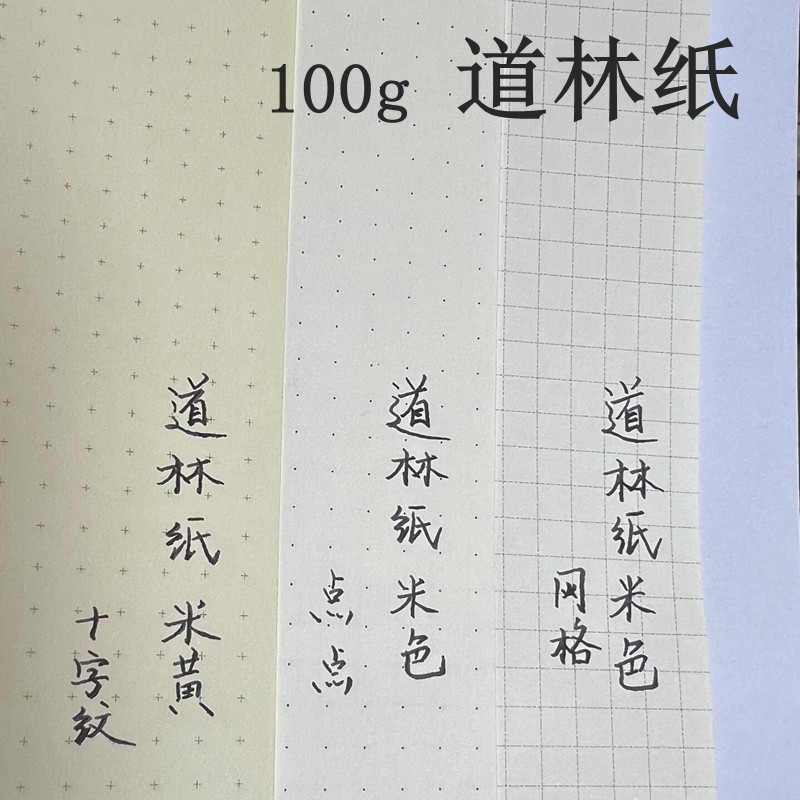 100g 道林纸
道林纸 米黄
十字纹
道林纸 米色
点点
道林纸米色
网格